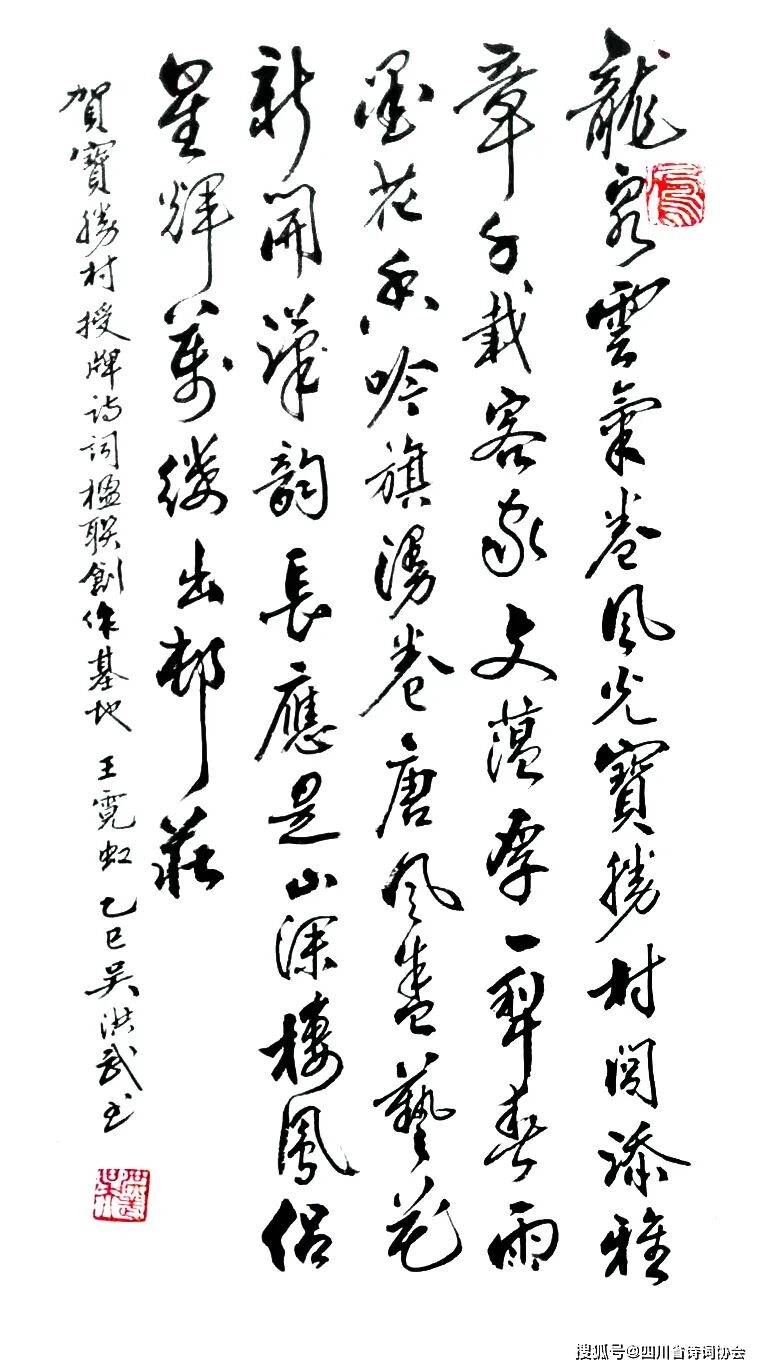 龍泉雲氣卷風光寶勝村閭添雅
章千載客家文蕴厚一犁春雨
墨花香吟旗漫卷唐風盛藝苑
新開漢韵長應是山深棲鳳侣
星輝萬缕出邨莊
賀寶勝村授牌诗词楹联創作基地 王霓虹 乙巳吴洪武书
搜狐号@四川省诗词协会